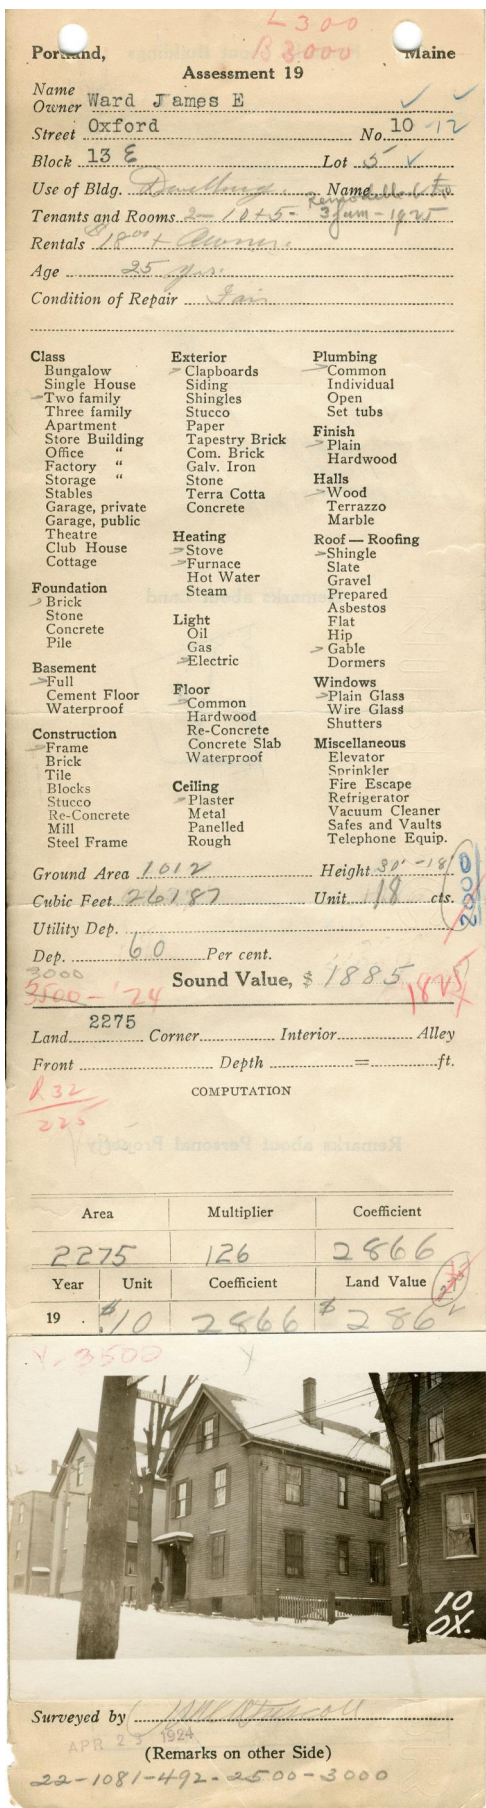 L 300
B 3000
Portland, Maine
Assessment 19
Name
Owner Ward James E
Street Oxford No. 10 -12
Block 13 E Lot 5
Use of Bldg. Dwelling. Name Remodelled into
Tenants and Rooms 2 - 10+5 - 3 fam - 1925
Rentals $18.00 + Owner.
Age 25 yrs.
Condition of Repair Fair
Class
Bungalow
Single House
Two family
Three family
Apartment
Store Building
Office "
Factory "
Storage "
Stables
Garage, private
Garage, public
Theatre
Club House
Cottage
Foundation
Brick
Stone
Concrete
Pile
Basement
Full
Cement Floor
Waterproof
Construction
Frame
Brick
Tile
Blocks
Stucco
Re-Concrete
Mill
Steel Frame
Exterior
Clapboards
Siding
Shingles
Stucco
Paper
Tapestry Brick
Com. Brick
Galv. Iron
Stone
Terra Cotta
Concrete
Heating
Stove
Furnace
Hot Water
Steam
Light
Oil
Gas
Electric
Floor
Common
Hardwood
Re-Concrete
Concrete Slab
Waterproof
Ceiling
Plaster
Metal
Panelled
Rough
Plumbing
Common
Individual
Open
Set tubs
Finish
Plain
Hardwood
Halls
Wood
Terrazzo
Marble
Roof — Roofing
Shingle
Slate
Gravel
Prepared
Asbestos
Flat
Hip
Gable
Dormers
Windows
Plain Glass
Wire Glass
Shutters
Miscellaneous
Elevator
Sprinkler
Fire Escape
Refrigerator
Vacuum Cleaner
Safes and Vaults
Telephone Equip.
Ground Area 1012 Height 30' -18'
Cubic Feet 26187 Unit 18 cts.
2000
Utility Dep.
Dep. 60 Per cent.
3000
Sound Value, $ 1885 1825
3500 - '24
Land 2275 Corner Interior Alley
Front Depth = ft.
R 32
225
COMPUTATION
Area Multiplier Coefficient
2275 126 2866
Year Unit Coefficient Land Value
275
19 $10 2866 $286
Y-3500 Y
10
OX.
Surveyed by
APR 23 1924
(Remarks on other Side)
22-1081-492-2500-3000